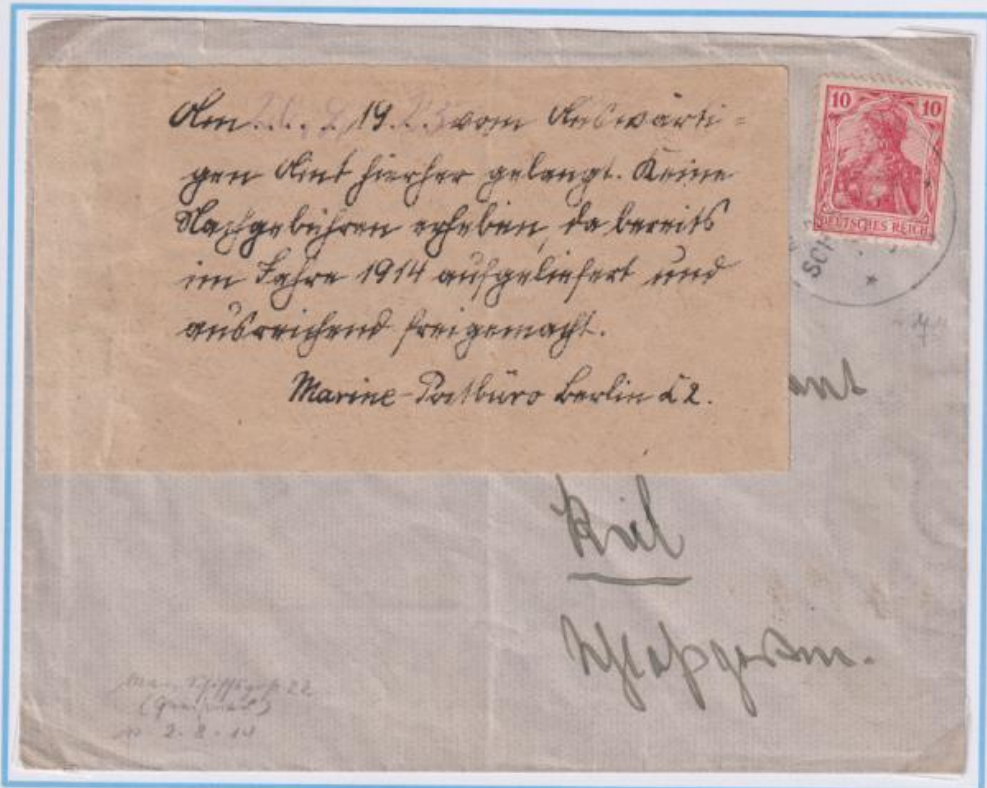 Am 21. 2. 1923 vom Auswärti=
gen Amt hierher gelangt. Keine
Nachgebühren erheben, da bereits
im Jahre 1914 aufgeliefert und
ausreichend freigemacht.
Marine-Postbüro Berlin C 2.
10 10
DEUTSCHES REICH
SCH
ant
Kiel
Schloßgarten.
2.8.14